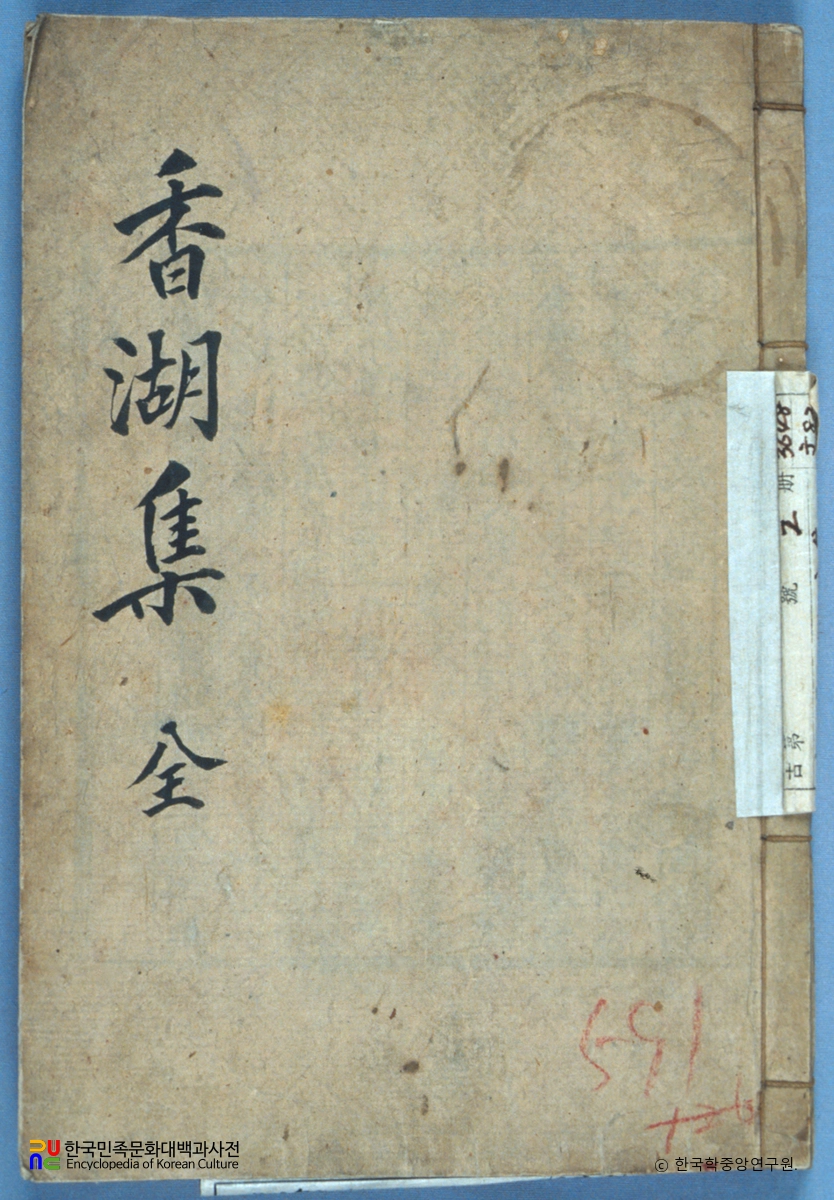 香湖集 全
3648
册 2 號
古 第
한국민족문화대백과사전
Encyclopedia of Korean Culture
© 한국학중앙연구원.